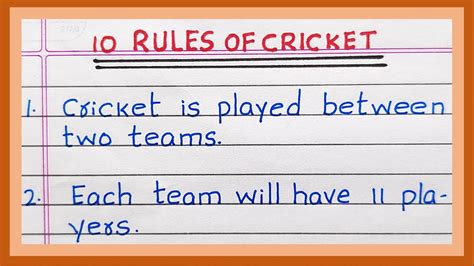 10 RULES OF CRICKET
1. Cricket is played between
two teams.
2. Each team will have 11 pla-
yers.